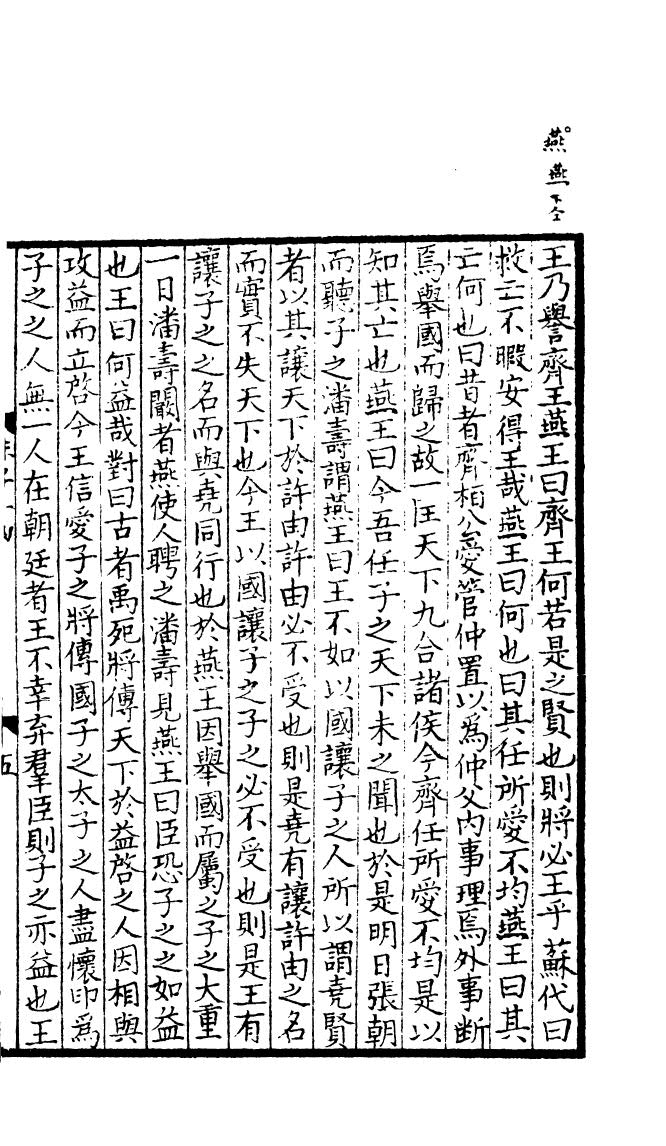 燕燕下仝
王乃譽齊王燕王曰齊王何若是之賢也則將必王乎蘇代曰
救亡不暇安得王哉燕王曰何也曰其任所愛不均燕王曰其
亡何也曰昔者齊桓公愛管仲置以爲仲父內事理焉外事斷
焉舉國而歸之故一匡天下九合諸侯今齊任所愛不均是以
知其亡也燕王曰今吾任子之天下未之聞也於是明日張朝
而聽子之潘壽謂燕王曰王不如以國讓子之人所以謂堯賢
者以其讓天下於許由許由必不受也則是堯有讓許由之名
而實不失天下也今王以國讓子之子之必不受也則是王有
讓子之之名而與堯同行也於燕王因舉國而屬之子之大重
一曰潘壽闞者燕使人聘之潘壽見燕王曰臣恐子之之如益
也王曰何益哉對曰古者禹死將傳天下於益啓之人因相與
攻益而立啓今王信愛子之將傳國子之太子之人盡懷印爲
子之之人無一人在朝廷者王不幸弃羣臣則子之亦益也王
五